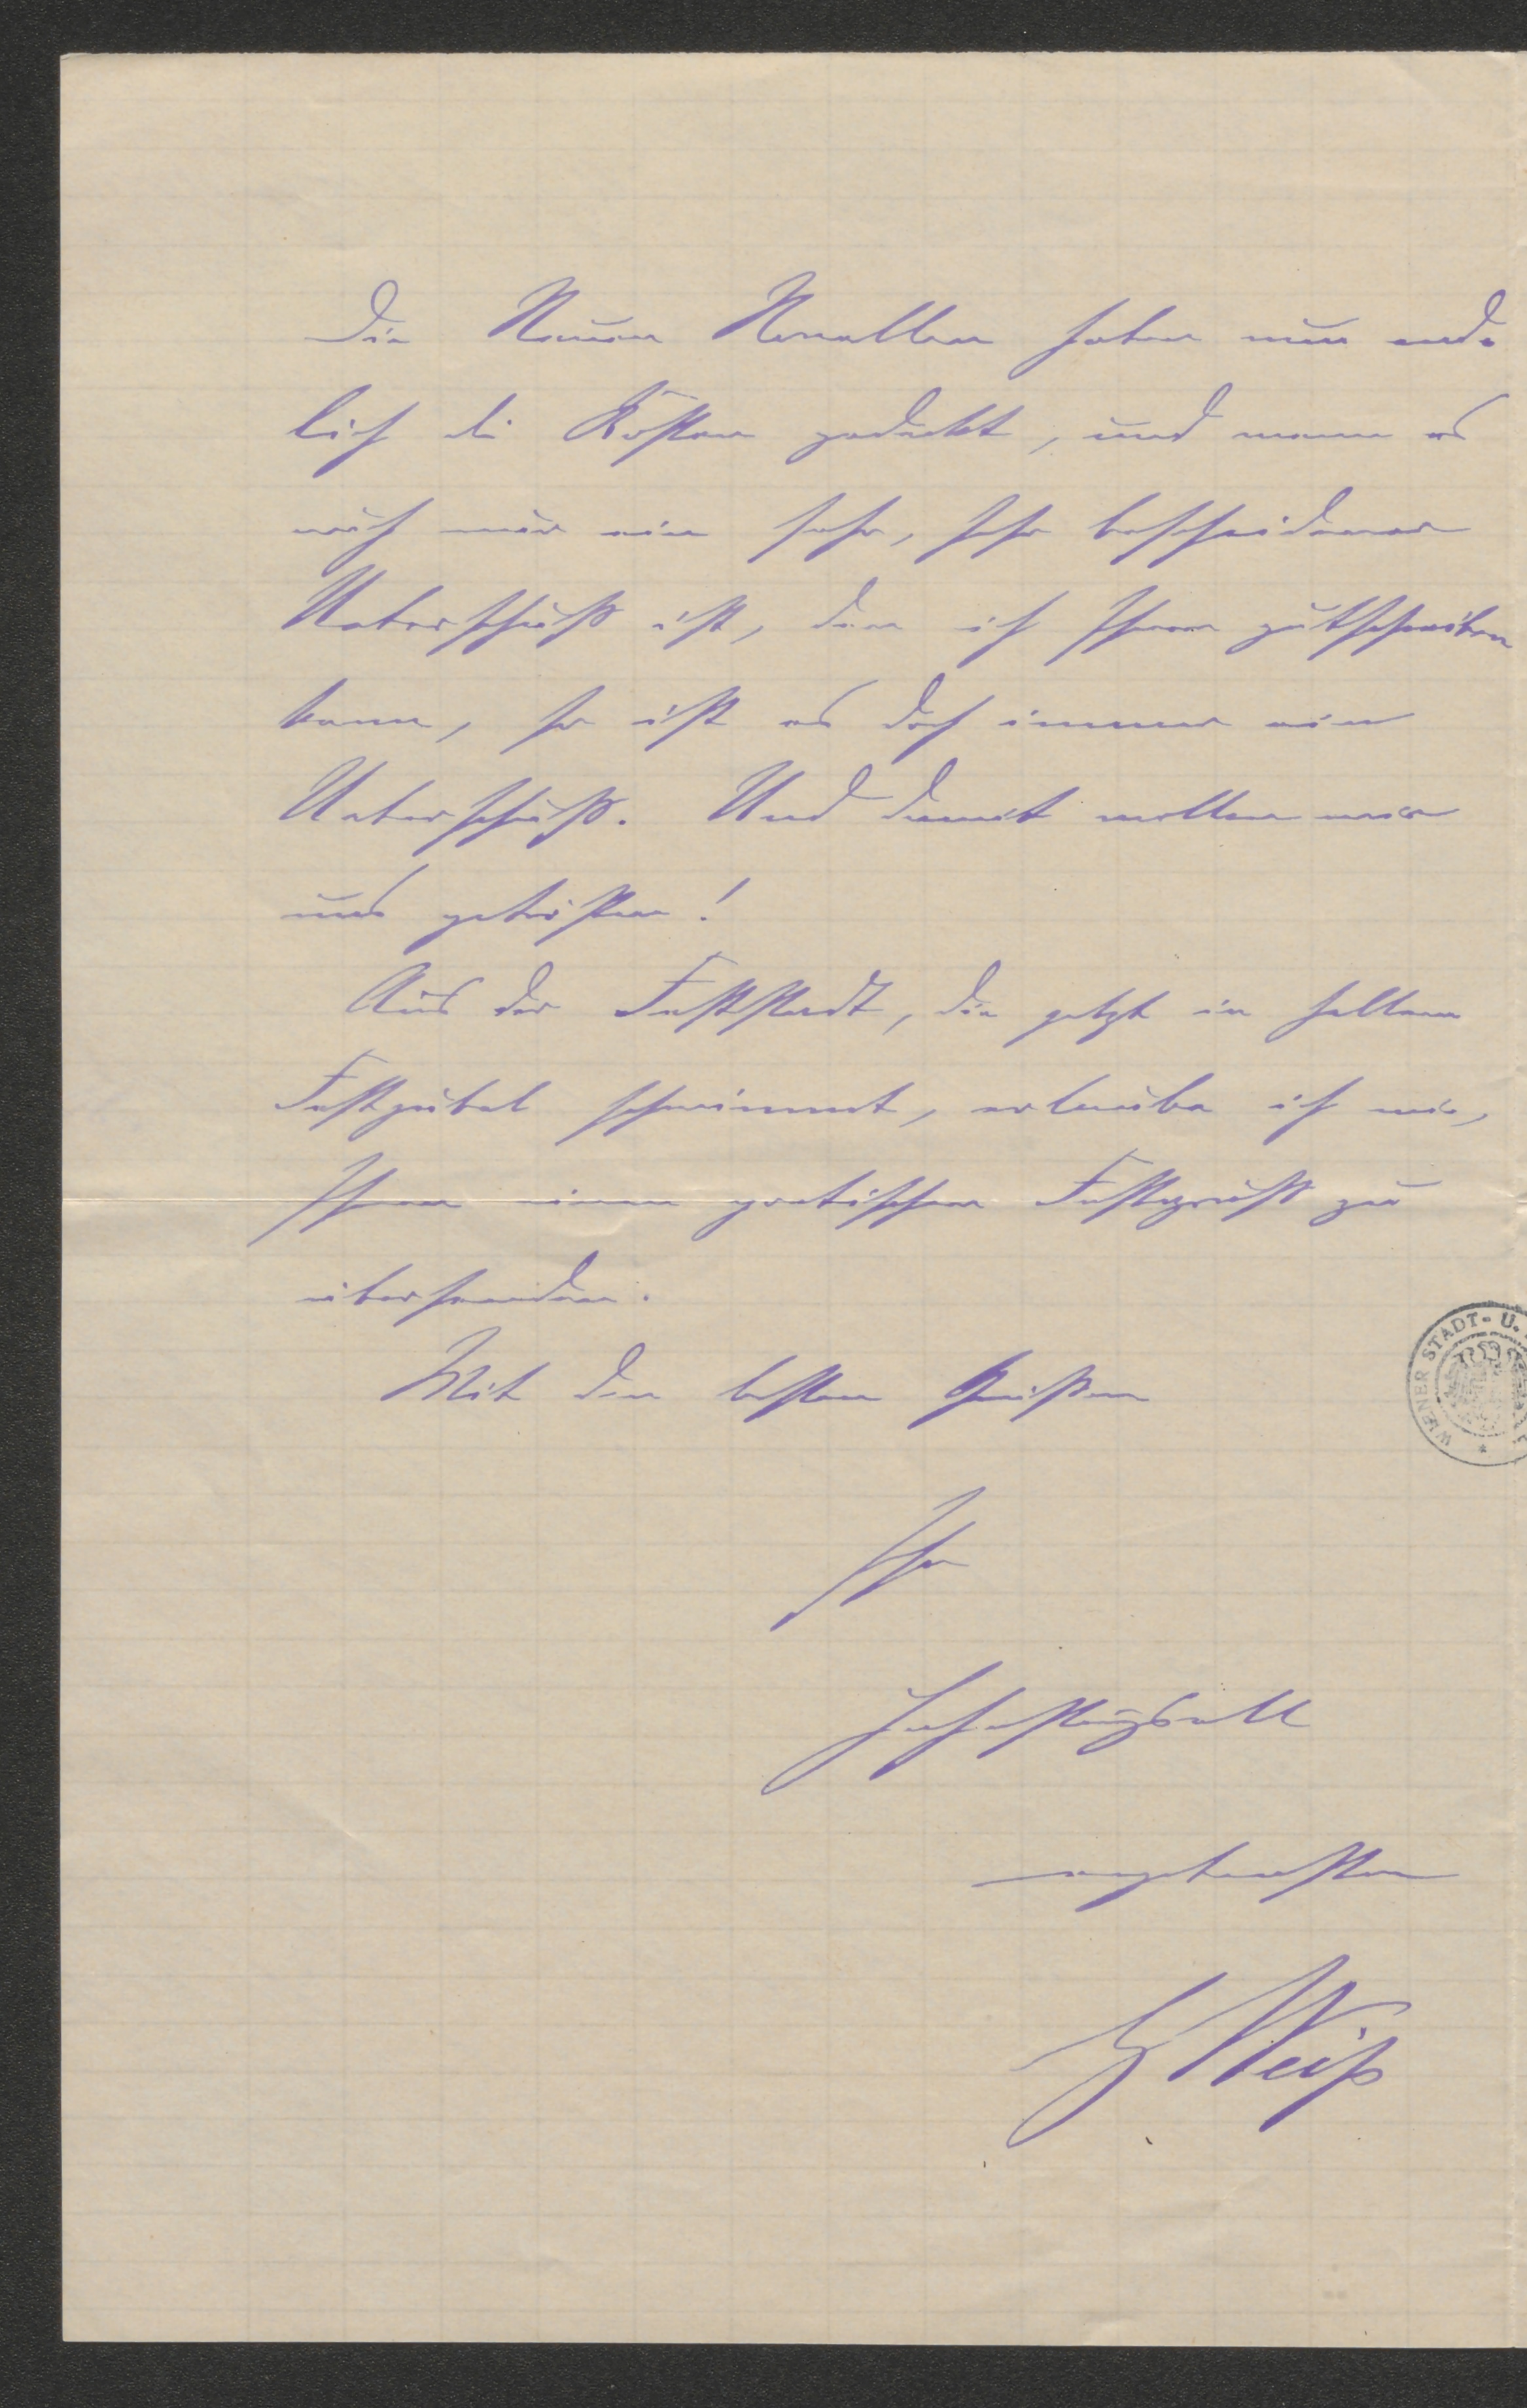 Die Neuen Novellen haben nun end-
lich die Kosten gedeckt, und wenn es
auch nur ein sehr, sehr bescheidener
Ueberschuß ist, den ich Ihnen gutschreiben
kann, so ist es doch immer ein
Ueberschuß. Und damit wollen wir
uns getrösten!
Aus der Feststadt, die jetzt in hellem
Festjubel schwimmt, erlaube ich mir,
Ihnen einen poetischen Festgruß zu
übersenden.
Mit den besten Grüßen
Ihr
hochachtungsvoll
ergebenster
Weiß
WIENER STADT- U.